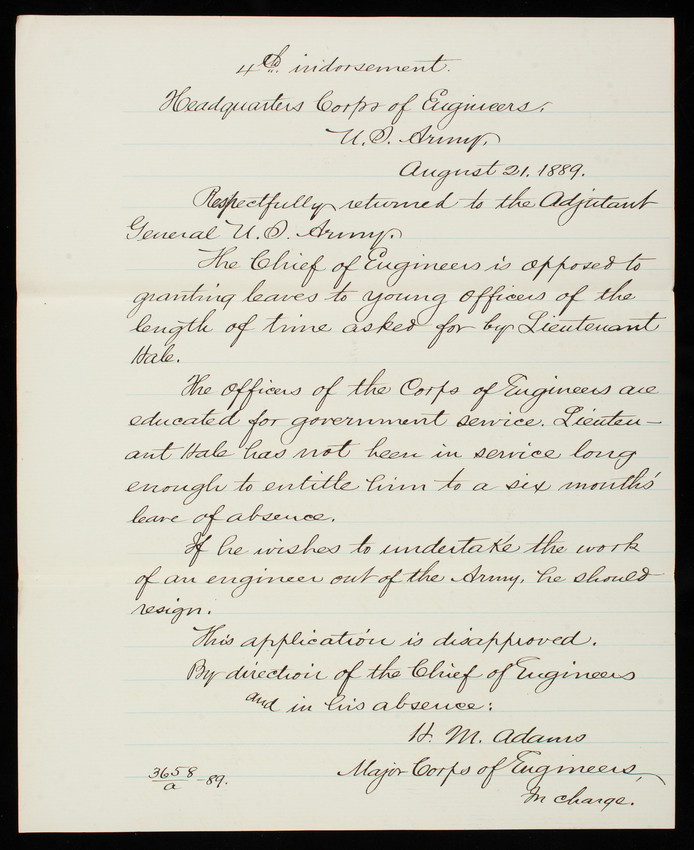 4th indorsement.
Headquarters Corps of Engineers,
U.S. Army,
August 21, 1889.
Respectfully returned to the Adjutant
General U.S. Army.
The Chief of Engineers is opposed to
granting leaves to young officers of the
length of time asked for by Lieutenant
Hale.
The officers of the Corps of Engineers are
educated for government service. Lieuten-
ant Hale has not been in service long
enough to entitle him to a six months'
leave of absence.
If he wishes to undertake the work
of an engineer out of the Army, he should
resign.
This application is disapproved.
By direction of the Chief of Engineers
and in his absence:
H. M. Adams
Major Corps of Engineers,
In charge.
3658
a -89.